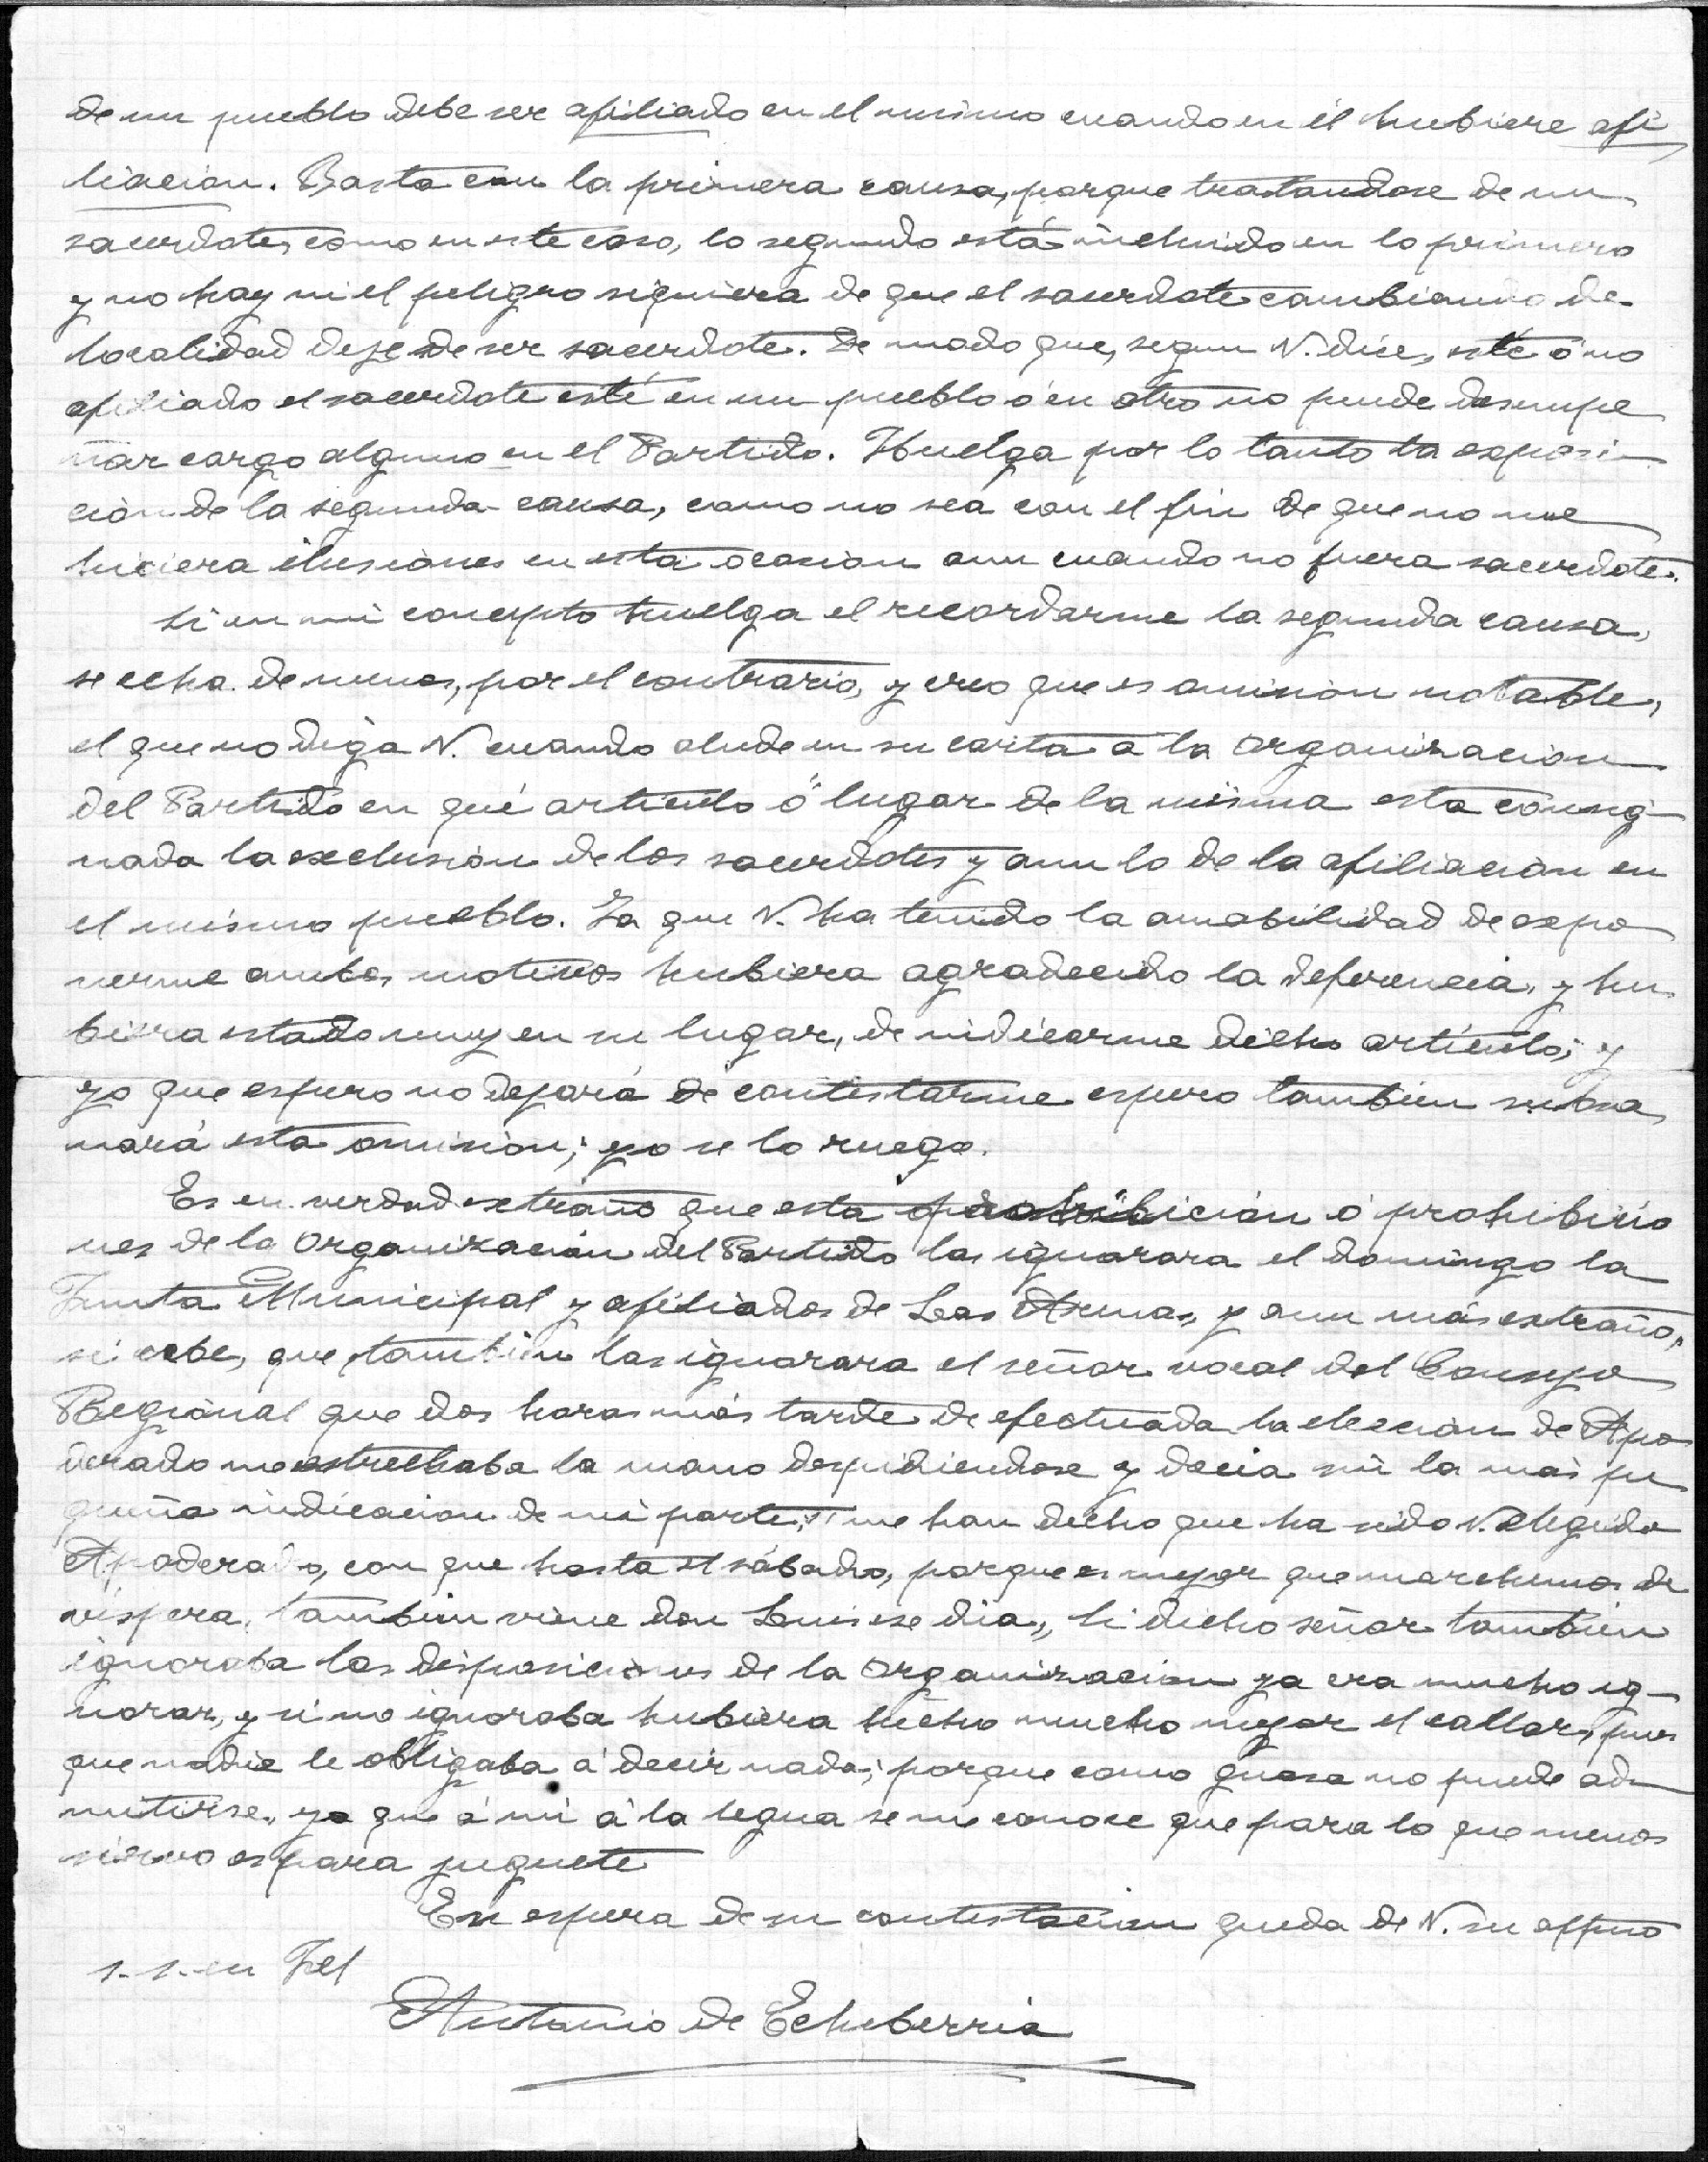 de un pueblo debe ser afiliado en el mismo cuando en él hubiere afi
liacion. Basta con la primera causa, porque tratandose de un
sacerdote, como en este caso, lo segundo está incluido en lo primero
y no hay ni el peligro siquiera de que el sacerdote cambiando de
localidad deje de ser sacerdote. De modo que, segun V. dice, esté ó no
afiliado el sacerdote esté en un pueblo ó en otro no puede desempe
ñar cargo alguno en el Partido. Huelga por lo tanto la exposi-
cion de la segunda causa, como no sea con el fin de que no me
hiciera ilusiones en esta ocasion aun cuando no fuera sacerdote.
Si en mi concepto huelga el recordarme la segunda causa,
se echa de menos, por el contrario, y creo que es omision notable,
el que no diga V. cuando alude en su carta a la Organizacion
del Partido en qué articulo ó lugar de la misma esta consig-
nada la exclusion de los sacerdotes y aun lo de la afiliacion en
el mismo pueblo. Ya que V. ha tenido la amabilidad de expo
nerme ambos motivos hubiera agradecido la deferencia, y hu
biera estado muy en su lugar, de indicarme dicho artículo; y
yo que espero no dejará de contestarme espero tambien subsa
nará esta omision; yo se lo ruego.
Es en verdad extraño que esta prohibicion ó prohibicio
nes de la Organizacion del Partido las ignorara el domingo la
Junta Municipal y afiliados de Las Arenas, y aun más extraño,
si cabe, que tambien las ignorara el señor vocal del Consejo
Regional que dos horas más tarde de efectuada la eleccion de Apo
derado me estrechaba la mano despidiendose y decia sin la más pe
queña indicacion de mi parte: "me han dicho que ha sido V. elegido
Apoderado, con que hasta el sábado, porque es mejor que marchemos de
víspera, tambien viene don Luis ese dia„ Si dicho señor tambien
ignoraba las disposiciones de la Organizacion ya era mucho ig-
norar, y si no ignoraba hubiera hecho mucho mejor el callar, pues
que nadie le obligaba á decir nada; porque como guasa no puede ad-
mitirse, ya que á mi á la legua se me conoce que para lo que menos
sirvo es para juguete
En espera de su contestacion queda de V. su affmo
s. s. en Jel
Antonio de Echeberria